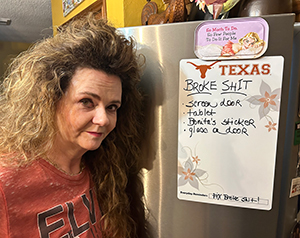 So Much To Do,
So Few People
To Do It For Me
TEXAS
BROKE SHIT
· screen door
· tablet
· Bonita's sticker
· glass a door
FIX BROKE SHIT!
ELV